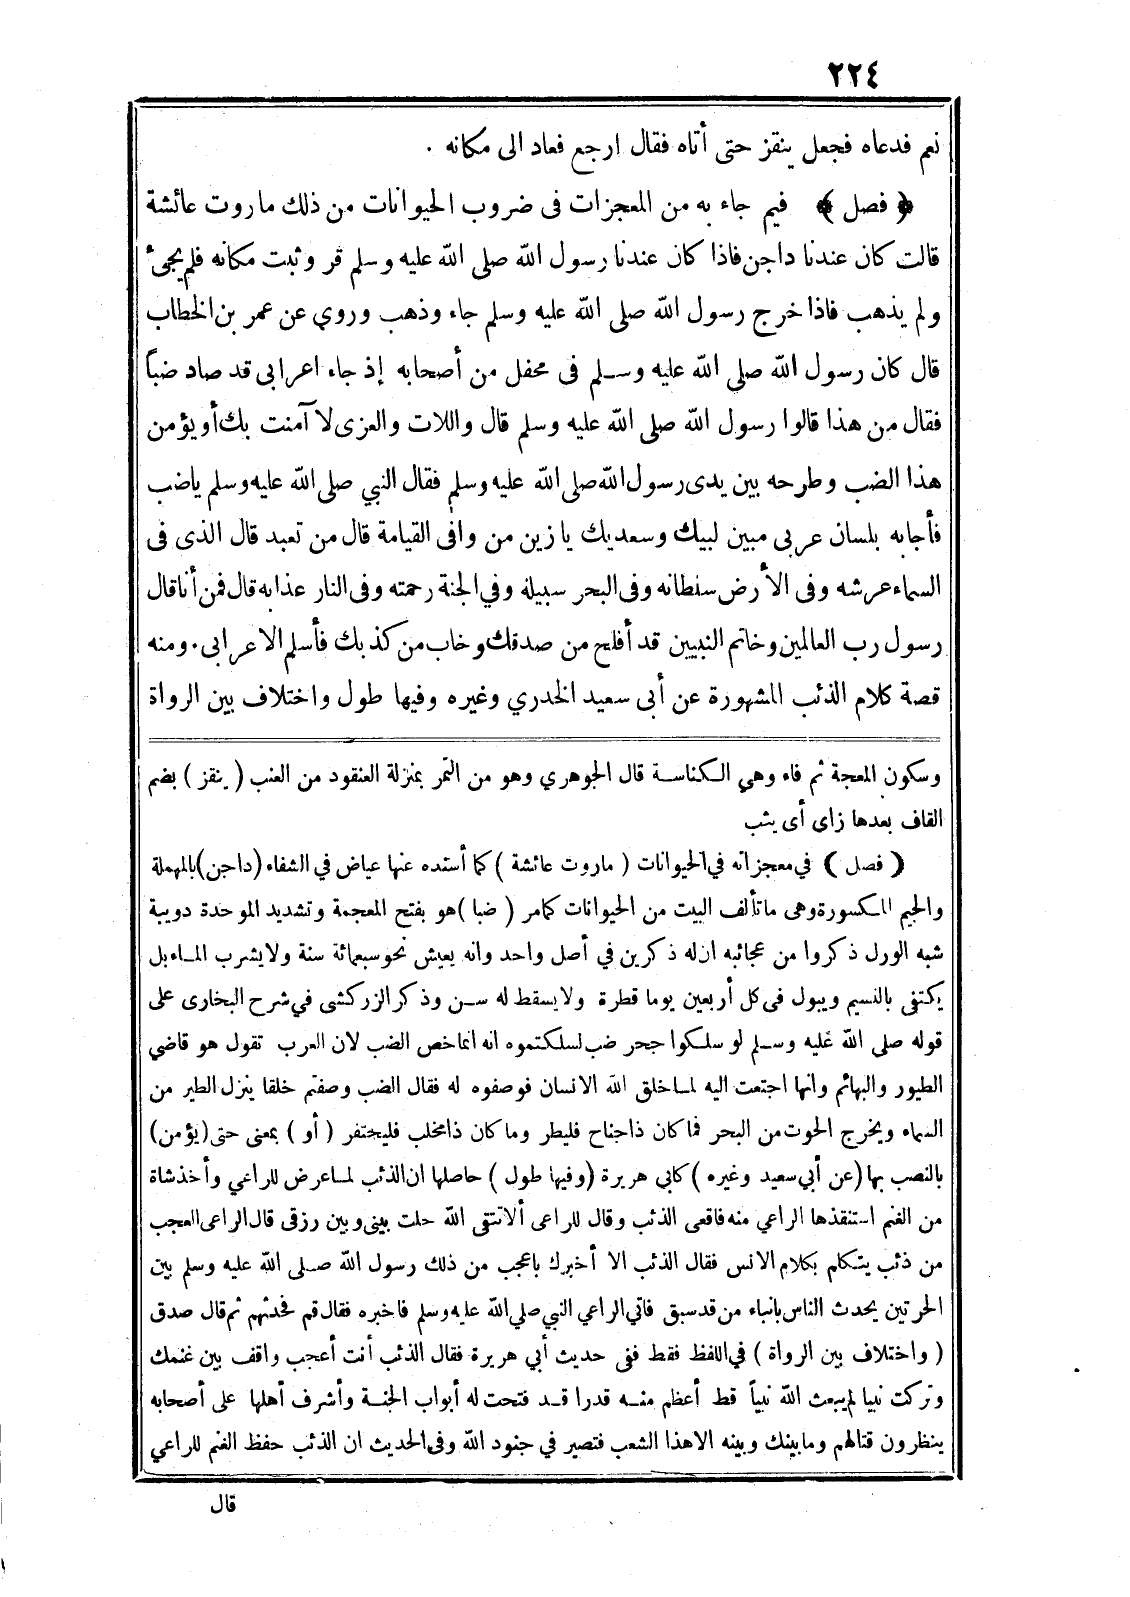 ٢٢٤
نعم فدعاه فجعل ينقز حتى أتاه فقال ارجع فعاد الى مكانه .
﴿ فصل ﴾ فيم جاء به من المعجزات فى ضروب الحيوانات من ذلك ماروت عائشة
قالت كان عندنا داجن فاذا كان عندنا رسول الله صلى الله عليه وسلم قر وثبت مكانه فلم يجىء
ولم يذهب فاذا خرج رسول الله صلى الله عليه وسلم جاء وذهب وروي عن عمر بن الخطاب
قال كان رسول الله صلى الله عليه وسلم فى محفل من أصحابه إذ جاء اعرابى قد صاد ضباً
فقال من هذا قالوا رسول الله صلى الله عليه وسلم قال واللات والعزى لا آمنت بك أو يؤمن
هذا الضب وطرحه بين يدى رسول الله صلى الله عليه وسلم فقال النبي صلى الله عليه وسلم ياضب
فأجابه بلسان عربى مبين لبيك وسعديك يا زين من وافى القيامة قال من تعبد قال الذى فى
السماء عرشه وفى الأرض سلطانه وفى البحر سبيله وفي الجنة رحمته وفى النار عذابه قال فمن أنا قال
رسول رب العالمين وخاتم النبيين قد أفلح من صدقك وخاب من كذبك فأسلم الاعرابى . ومنه
قصة كلام الذئب المشهورة عن أبى سعيد الخدري وغيره وفيها طول واختلاف بين الرواة
وسكون المعجة ثم فاء وهي الكناسة قال الجوهري وهو من التمر بمنزلة العنقود من العنب ( ينقز ) بضم
القاف بعدها زاى أى يثب
( فصل ) في معجزاته في الحيوانات ( ماروت عائشة ) كما أسنده عنها عياض في الشفاء (داجن) بالمهملة
والجيم المكسورة وهى ما تألف البيت من الحيوانات كمامر ( ضبا ) هو بفتح المعجمة وتشديد الموحدة دويبة
شبه الورل ذكروا من عجائبه ان له ذكرين في أصل واحد وانه يعيش نحو سبعمائة سنة ولا يشرب الماء بل
يكتفى بالنسيم ويبول فى كل أربعين يوما قطرة ولا يسقط له سن وذكر الزركشى في شرح البخارى على
قوله صلى الله عليه وسلم لو سلكوا جحر ضب لسلكتموه انه انما خص الضب لان العرب تقول هو قاضي
الطيور والبهائم وانها اجتمعت اليه لما خلق الله الانسان فوصفوه له فقال الضب وصفتم خلقا ينزل الطير من
السماء ويخرج الحوت من البحر فما كان ذا جناح فليطر وما كان ذا مخلب فليحتفر ( أو ) بمعنى حتى (يؤمن)
بالنصب بها (عن أبي سعيد وغيره ) كابي هريرة (وفيها طول ) حاصلها ان الذئب لما عرض للراعي وأخذ شاة
من الغنم استنقذها الراعي منه فاقعى الذئب وقال للراعى ألا تتقى الله حلت بينى وبين رزقى قال الراعى العجب
من ذئب يتكلم بكلام الانس فقال الذئب الا أخبرك باعجب من ذلك رسول الله صلى الله عليه وسلم بين
الحرتين يحدث الناس بانباء من قد سبق فاتي الراعي النبي صلي الله عليه وسلم فاخبره فقال قم فحدثهم ثم قال صدق
( واختلاف بين الرواة ) في اللفظ فقط ففى حديث أبي هريرة فقال الذئب أنت أعجب واقف بين غنمك
وتركت نبيا لم يبعث الله نبياً قط أعظم منه قدرا قد فتحت له أبواب الجنة وأشرف أهلها على أصحابه
ينظرون قتالهم وما بينك وبينه الا هذا الشعب فتصير في جنود الله وفى الحديث ان الذئب حفظ الغنم للراعي
قال